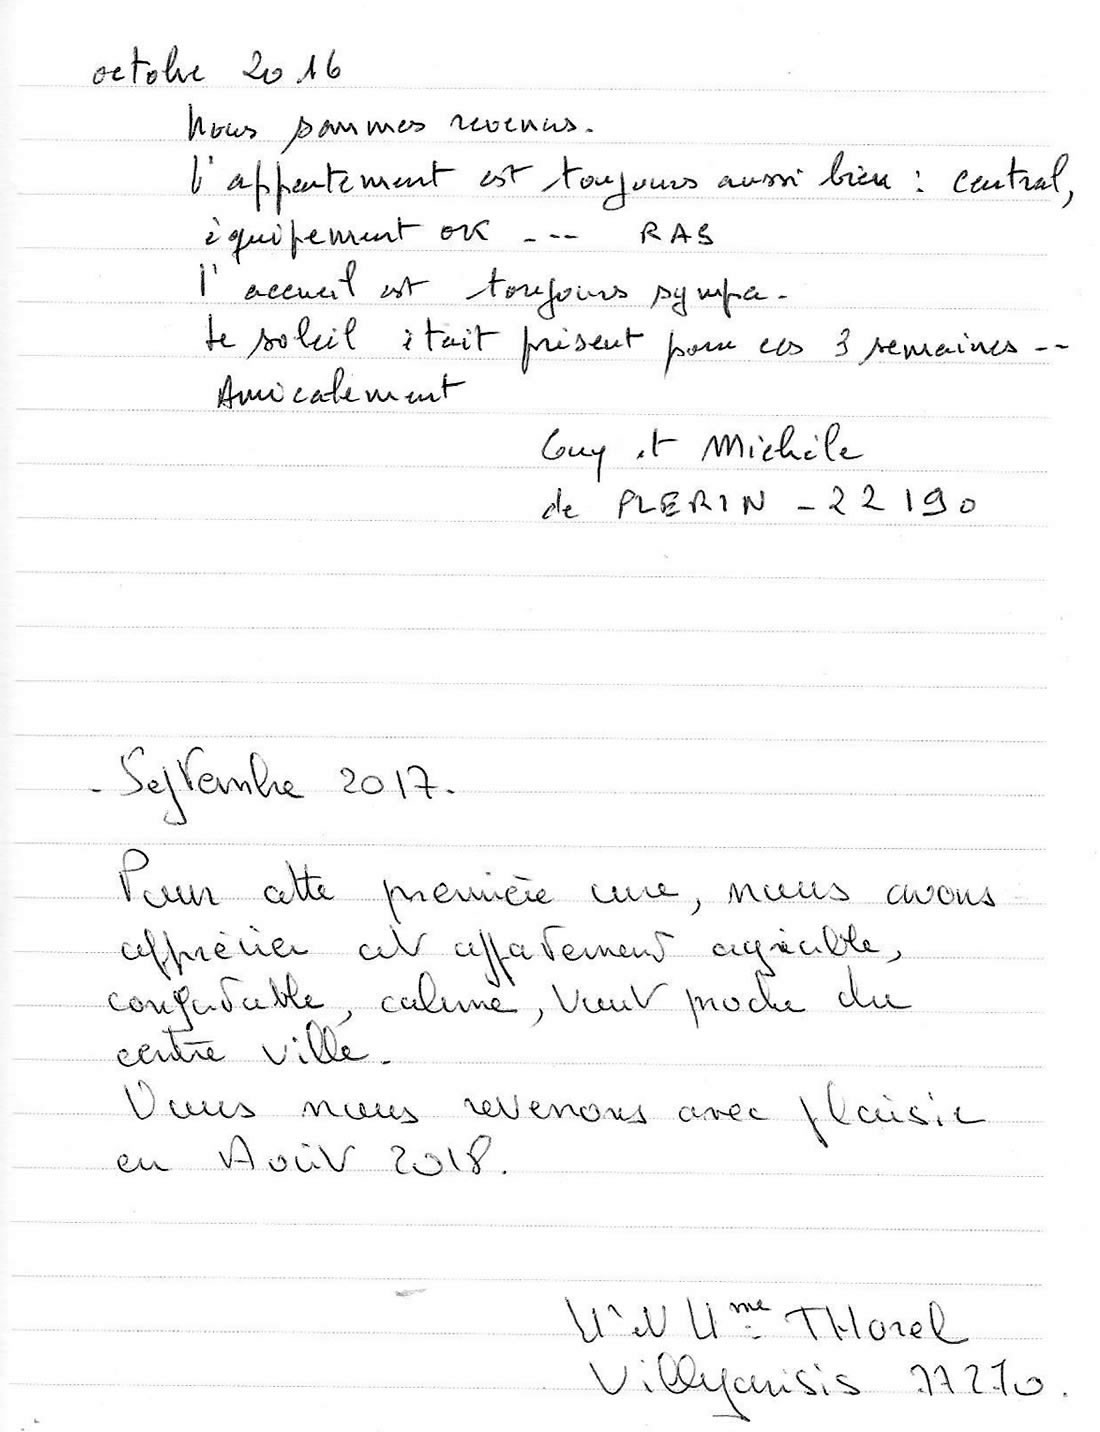 octobre 2016
Nous sommes revenus.
l'appartement est toujours aussi bien : central,
équipement OK --- RAS
l'accueil est toujours sympa.
Le soleil était présent pour ces 3 semaines --
Amicalement
Guy et Michèle
de PLERIN - 22190
- Septembre 2017.
Pour cette première cure, nous avons
apprécier cet appartement agréable,
confortable, calme, tout proche du
centre ville.
Nous revenons avec plaisir
en Août 2018.
Mr et Mme THorel
Villeparisis 77270.